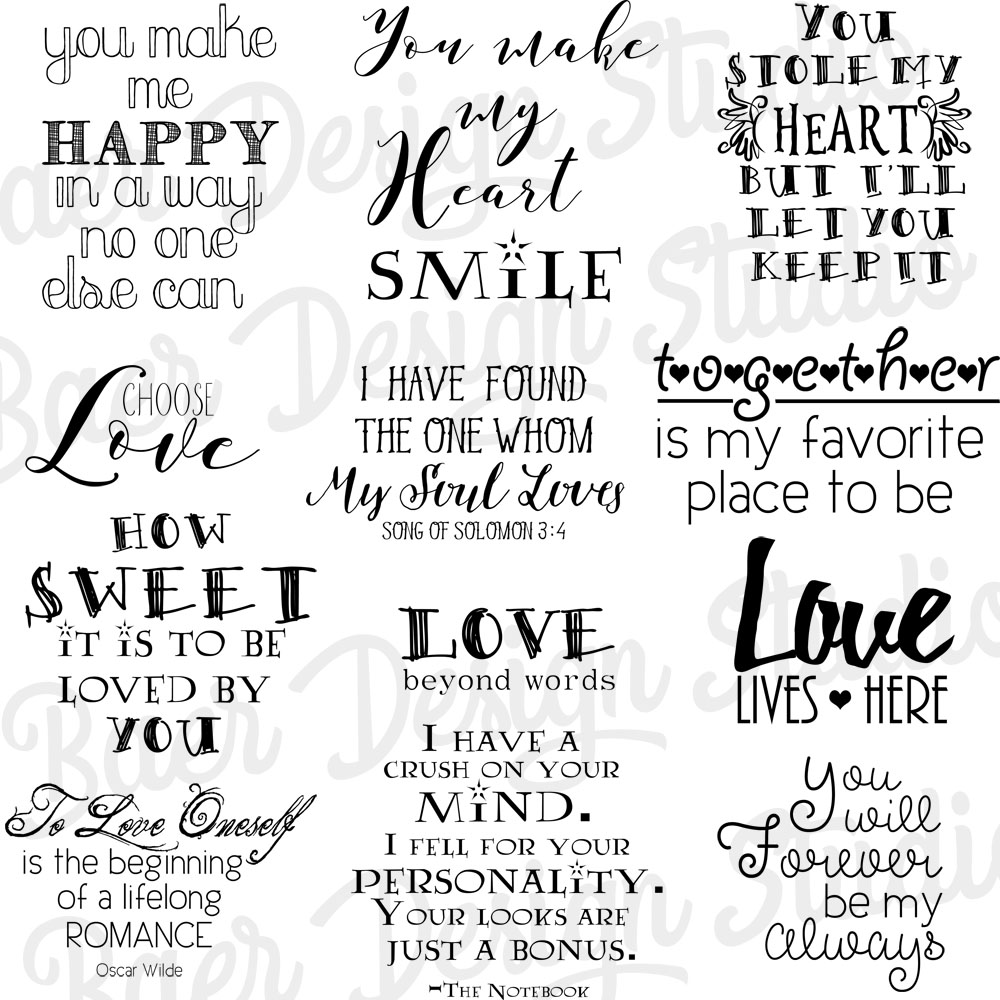 you make
me
HAPPY
in a way
no one
else can
You make
my
Heart
SMiLE
YOU
STOLE MY
HEART
BUT I'LL
LET YOU
KEEP IT
CHOOSE
Love
I HAVE FOUND
THE ONE WHOM
My Soul Loves
SONG OF SOLOMON 3:4
t•o•g•e•t•h•e•r
is my favorite
place to be
HOW
SWEET
iT iS TO BE
LOVED BY
YOU
LOVE
beyond words
Love
LIVES ♥ HERE
To Love Oneself
is the beginning
of a lifelong
ROMANCE
Oscar Wilde
I HAVE A
CRUSH ON YOUR
MiND.
I FELL FOR YOUR
PERSONALiTY.
YOUR LOOKS ARE
JUST A BONUS.
~THE NOTEBOOK
You
will
Forever
be my
always
Baer Design Studio
Baer Design Studio
Baer Design Studio
Baer Design Studio